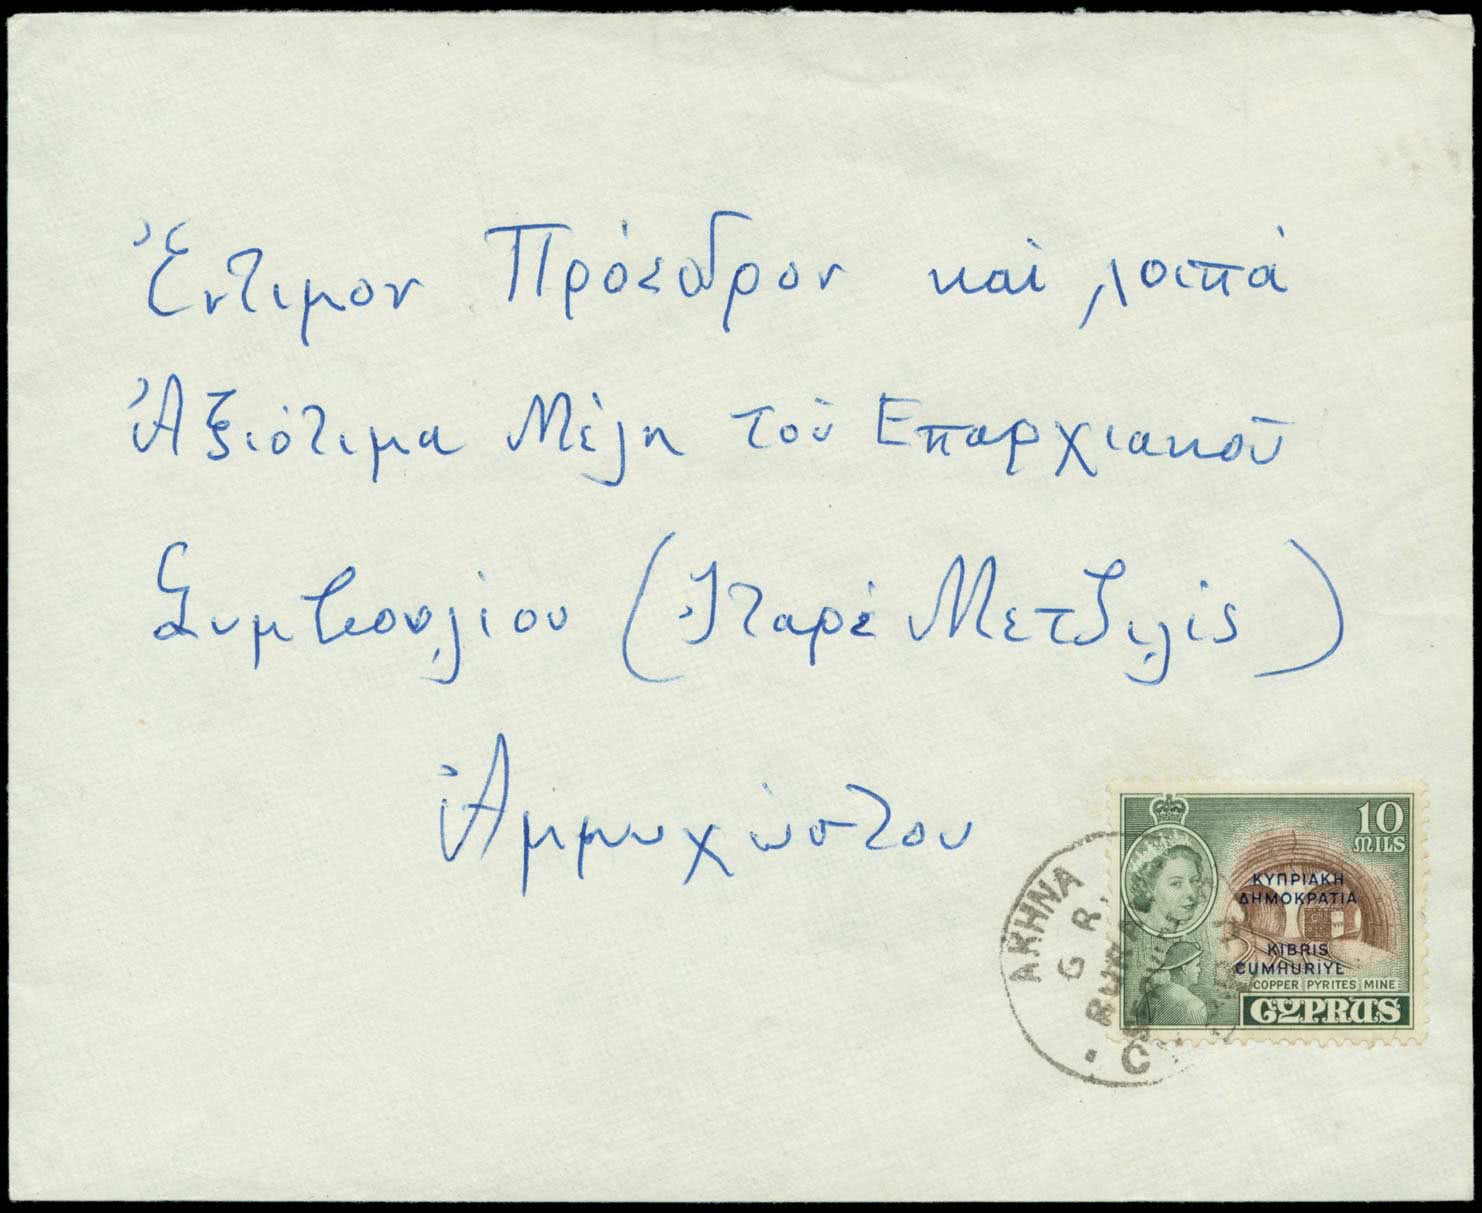 Ἔντιμον Πρόεδρον καὶ λοιπὰ
Ἀξιότιμα Μέλη τοῦ Επαρχιακοῦ
Συμβουλίου (Ἰταρὲ Μετζιλίς)
Ἀμμοχώστου
10
MILS
ΚΥΠΡΙΑΚΗ
ΔΗΜΟΚΡΑΤΙΑ
KIBRIS
CUMHURIYETI
COPPER PYRITES MINE
CYPRUS
AKHNA
G. R.
RURAL